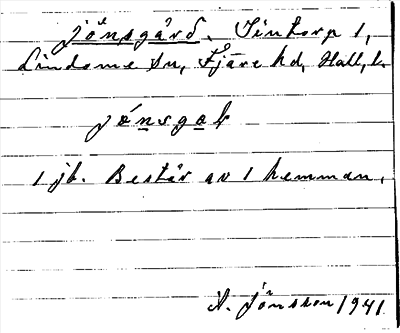 Jönsgård. Sintorp 1,
Lindome sn, Fjäre hd, Hall. l.
jönsgal
1 jb. Består av 1 hemman.
A. Jönsson 1941